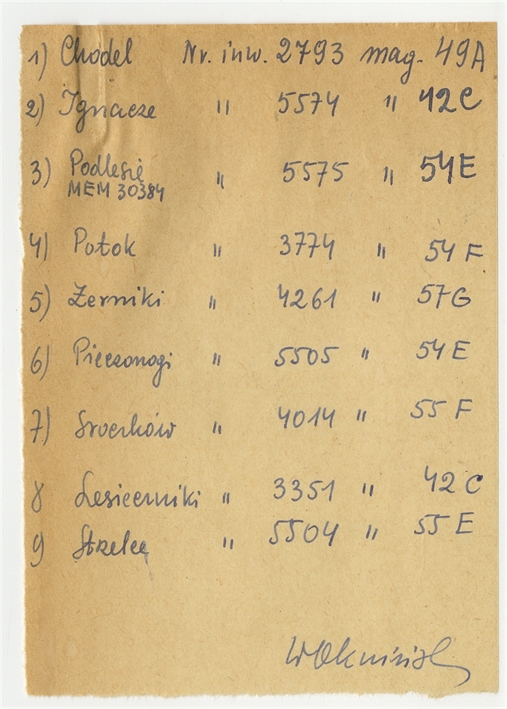 1) Chodel Nr. inw. 2793 mag. 49A
2) Ignacze " 5574 " 42C
3) Podlesie " 5575 " 54E
MEM 30384
4) Potok " 3774 " 54 F
5) Żerniki " 4261 " 57G
6) Pieczonogi " 5505 " 54 E
7) " 4014 " 55 F
8 Lesieczniki " 3351 " 42 C
9 Strzelce " 5504 " 55 E